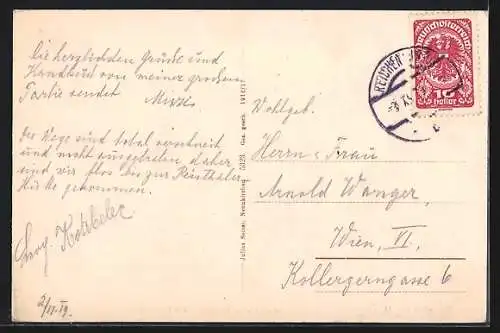 Die herzlichsten Grüße und
Handkuß von meiner großen
Partie sendet
Der Wege sind total verschneit
und nicht ausgetreten, daher
sind wir blos bis zur Reinthaler
Hütte gekommen.
Georg Kotrbelec
2/XI 19.
Julius Seiser, Neunkirchen 5129 Ges. gesch. 1916/17
Deutschösterreich
10
Heller
REICHEN
Wohlgeb.
Herrn u Frau
Arnold Wanger,
Wien, VI.
Kollergerngasse 6